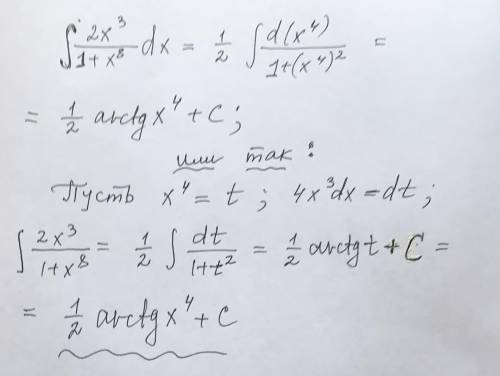 ∫ 2x³/(1+x⁸) dx = 1/2 ∫ d(x⁴)/(1+(x⁴)²) =
= 1/2 arctg x⁴ + C ;
или так :
Пусть x⁴ = t ; 4x³dx = dt ;
∫ 2x³/(1+x⁸) = 1/2 ∫ dt/(1+t²) = 1/2 arctg t + C =
= 1/2 arctg x⁴ + C